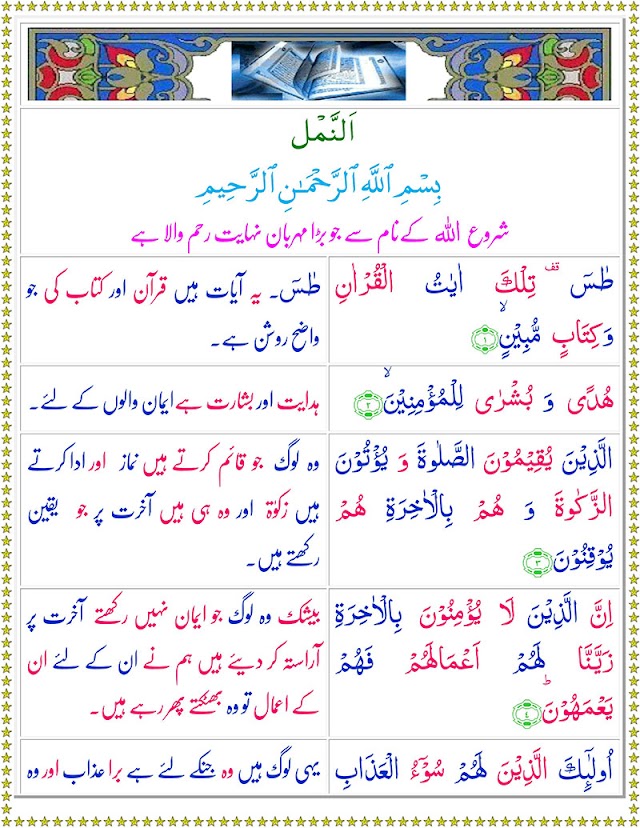 اَلنَّمْل
بِسْمِ ٱللَّهِ ٱلرَّحْمَـٰنِ ٱلرَّحِيمِ
شروع اللہ کے نام سے جو بڑا مہربان نہایت رحم والا ہے
طٰسٓ ۚقف تِلْكَ اٰيٰتُ الْقُرْاٰنِ
وَكِتَابٍ مُّبِيْنٍۙ ﴿١﴾
طٰسٓ۔ یہ آیات ہیں قرآن اور کتاب کی جو
واضح روشن ہے۔
هُدًى وَ بُشْرٰى لِلْمُؤْمِنِيْنَۙ ﴿٢﴾
ہدایت اور بشارت ہے ایمان والوں کے لئے۔
الَّذِيْنَ يُقِيْمُوْنَ الصَّلٰوةَ وَ يُؤْتُوْنَ
الزَّكٰوةَ وَ هُمْ بِالْاٰخِرَةِ هُمْ
يُوْقِنُوْنَ ﴿٣﴾
وہ لوگ جو قائم کرتے ہیں نماز اور ادا کرتے
ہیں زکوٰۃ اور وہ ہی ہیں آخرت پر جو یقین
رکھتے ہیں۔
اِنَّ الَّذِيْنَ لَا يُؤْمِنُوْنَ بِالْاٰخِرَةِ
زَيَّنَّا لَهُمْ اَعْمَالَهُمْ فَهُمْ
يَعْمَهُوْنَؕ ﴿٤﴾
بیشک وہ لوگ جو ایمان نہیں رکھتے آخرت پر
آراستہ کر دیئے ہیں ہم نے ان کے لئے ان
کے اعمال تو وہ بھٹکتے پھر رہے ہیں۔
اُولٰٓٮِٕكَ الَّذِيْنَ لَهُمْ سُوْٓءُ الْعَذَابِ
یہی لوگ ہیں وہ جنکے لئے ہے برا عذاب اور وہ